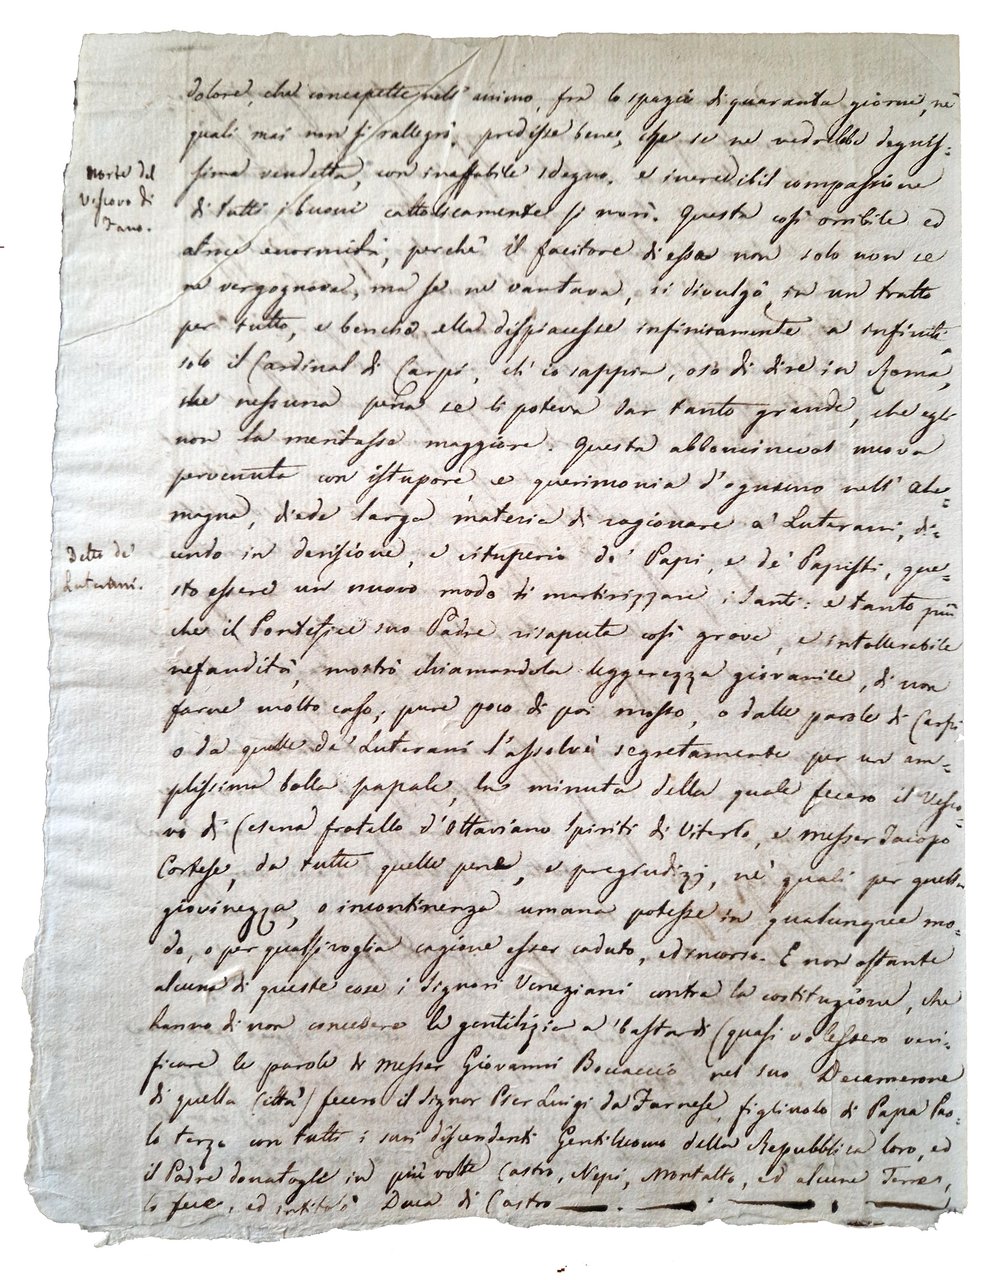 dolore, che concepette nell' animo, fra lo spazio di quaranta giorni, ne'
quali mai non si rallegrò, predisse bene, che se ne vedrebbe degnis-
Morte del
Vescovo di
Fano.
sima vendetta, con ineffabile sdegno, e incredibil compassione
di tutti i buoni cattolicamente si morì. Questa così orribile ed
atroce enormità, perchè il facitore di essa non solo non se
ne vergognava, ma se ne vantava, si divulgò in un tratto
per tutto, e benchè ella dispiacesse infinitamente a infiniti,
solo il Cardinal di Carpi, ch' io sappia, osò di dire in Roma,
che nessuna pena se li poteva dar tanto grande, che egli
non la meritasse maggiore. Questa abbominevol nuova
pervenuta con istupore e querimonia d'ognuno nell' Ale-
magna, diede larga materia di ragionare a' Luterani, di-
Detto de'
Luterani.
cendo in derisione, e vituperio de' Papi, e de' Papisti, que-
sto essere un nuovo modo di martirizzare i Santi: e tanto più
che il Pontefice suo Padre risaputa così grave, e intollerabile
nefandità, mostrò chiamandola leggerezza giovanile, di non
farne molto caso; pure poco di poi mosso, o dalle parole di Carpi
o da quelle de' Luterani l'assolvè segretamente per un am-
plissima bolla papale, la minuta della quale fecero il Vesco-
vo di Cesena fratello d'Ottaviano Spiriti di Viterbo, e Messer Jacopo
Cortese, da tutte quelle pene, e pregiudizj, ne' quali per quella
giovinezza, o incontinenza umana potesse in qualunque mo-
do, o per qualsivoglia cagione esser caduto, ed incorso. E non ostante
alcuna di queste cose i Signori Veneziani contra la costituzione, che
hanno di non concedere la gentilizia a' bastardi (quasi volessero veri-
ficare le parole di Messer Giovanni Boccaccio nel suo Decamerone
di quella Città) fecero il Signor Pier Luigi da Farnese, figliuolo di Papa Pao-
lo terzo con tutti i suoi discendenti Gentiluomo della Repubblica loro, ed
il Padre donatogle in più volte Castro, Nepi, Montalto, ed alcune Terre,
lo fece, ed intitolò Duca di Castro